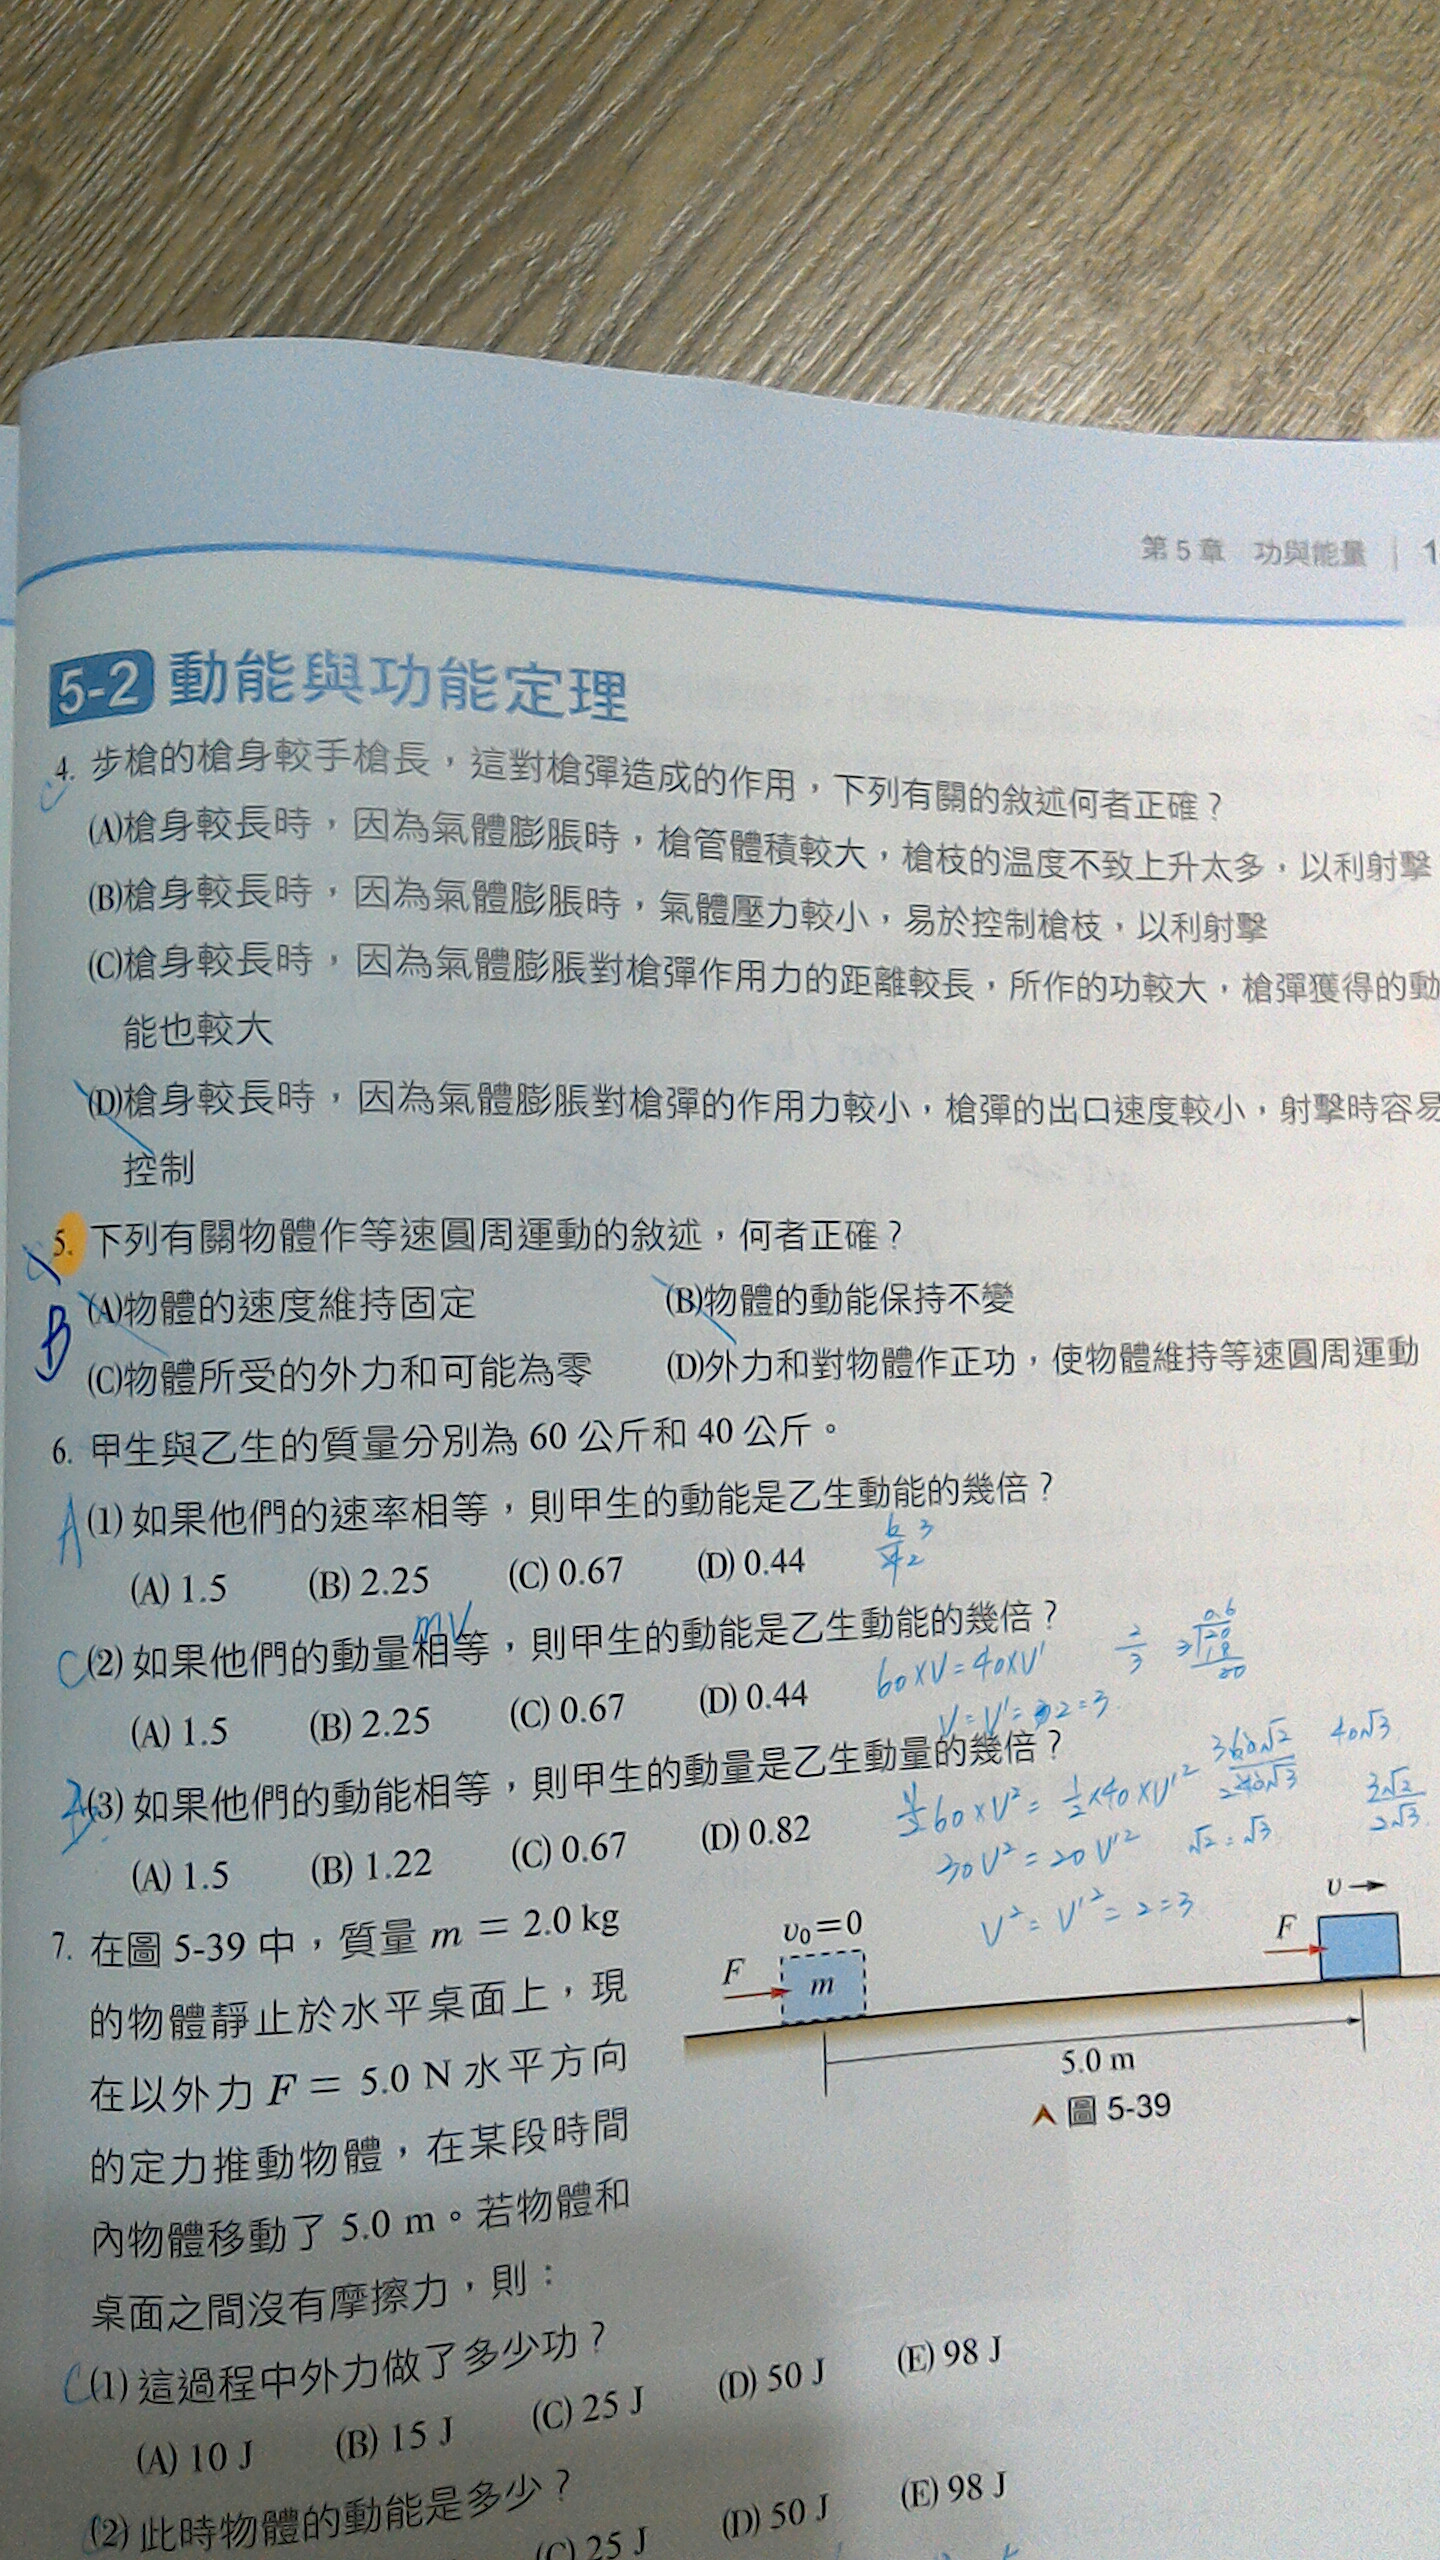 第5章 功與能量 | 1
5-2 動能與功能定理
4. 步槍的槍身較手槍長,這對槍彈造成的作用,下列有關的敘述何者正確?
(A)槍身較長時,因為氣體膨脹時,槍管體積較大,槍枝的溫度不致上升太多,以利射擊
(B)槍身較長時,因為氣體膨脹時,氣體壓力較小,易於控制槍枝,以利射擊
(C)槍身較長時,因為氣體膨脹對槍彈作用力的距離較長,所作的功較大,槍彈獲得的動
能也較大
(D)槍身較長時,因為氣體膨脹對槍彈的作用力較小,槍彈的出口速度較小,射擊時容易
控制
5. 下列有關物體作等速圓周運動的敘述,何者正確?
B
(A)物體的速度維持固定 (B)物體的動能保持不變
(C)物體所受的外力和可能為零 (D)外力和對物體作正功,使物體維持等速圓周運動
6. 甲生與乙生的質量分別為 60 公斤和 40 公斤。
A (1) 如果他們的速率相等,則甲生的動能是乙生動能的幾倍?
(A) 1.5 (B) 2.25 (C) 0.67 (D) 0.44
mv
C (2) 如果他們的動量相等,則甲生的動能是乙生動能的幾倍?
60×V=40×V'
(A) 1.5 (B) 2.25 (C) 0.67 (D) 0.44
(3) 如果他們的動能相等,則甲生的動量是乙生動量的幾倍?
(A) 1.5 (B) 1.22 (C) 0.67 (D) 0.82
30V²=20V'²
V²=V'²=2=3
7. 在圖 5-39 中,質量 m = 2.0 kg
的物體靜止於水平桌面上,現
在以外力 F = 5.0 N 水平方向
的定力推動物體,在某段時間
內物體移動了 5.0 m。若物體和
桌面之間沒有摩擦力,則:
υ₀=0
F
m
υ
F
5.0 m
圖 5-39
C (1) 這過程中外力做了多少功?
(A) 10 J (B) 15 J (C) 25 J (D) 50 J (E) 98 J
(2) 此時物體的動能是多少?
(C) 25 J (D) 50 J (E) 98 J